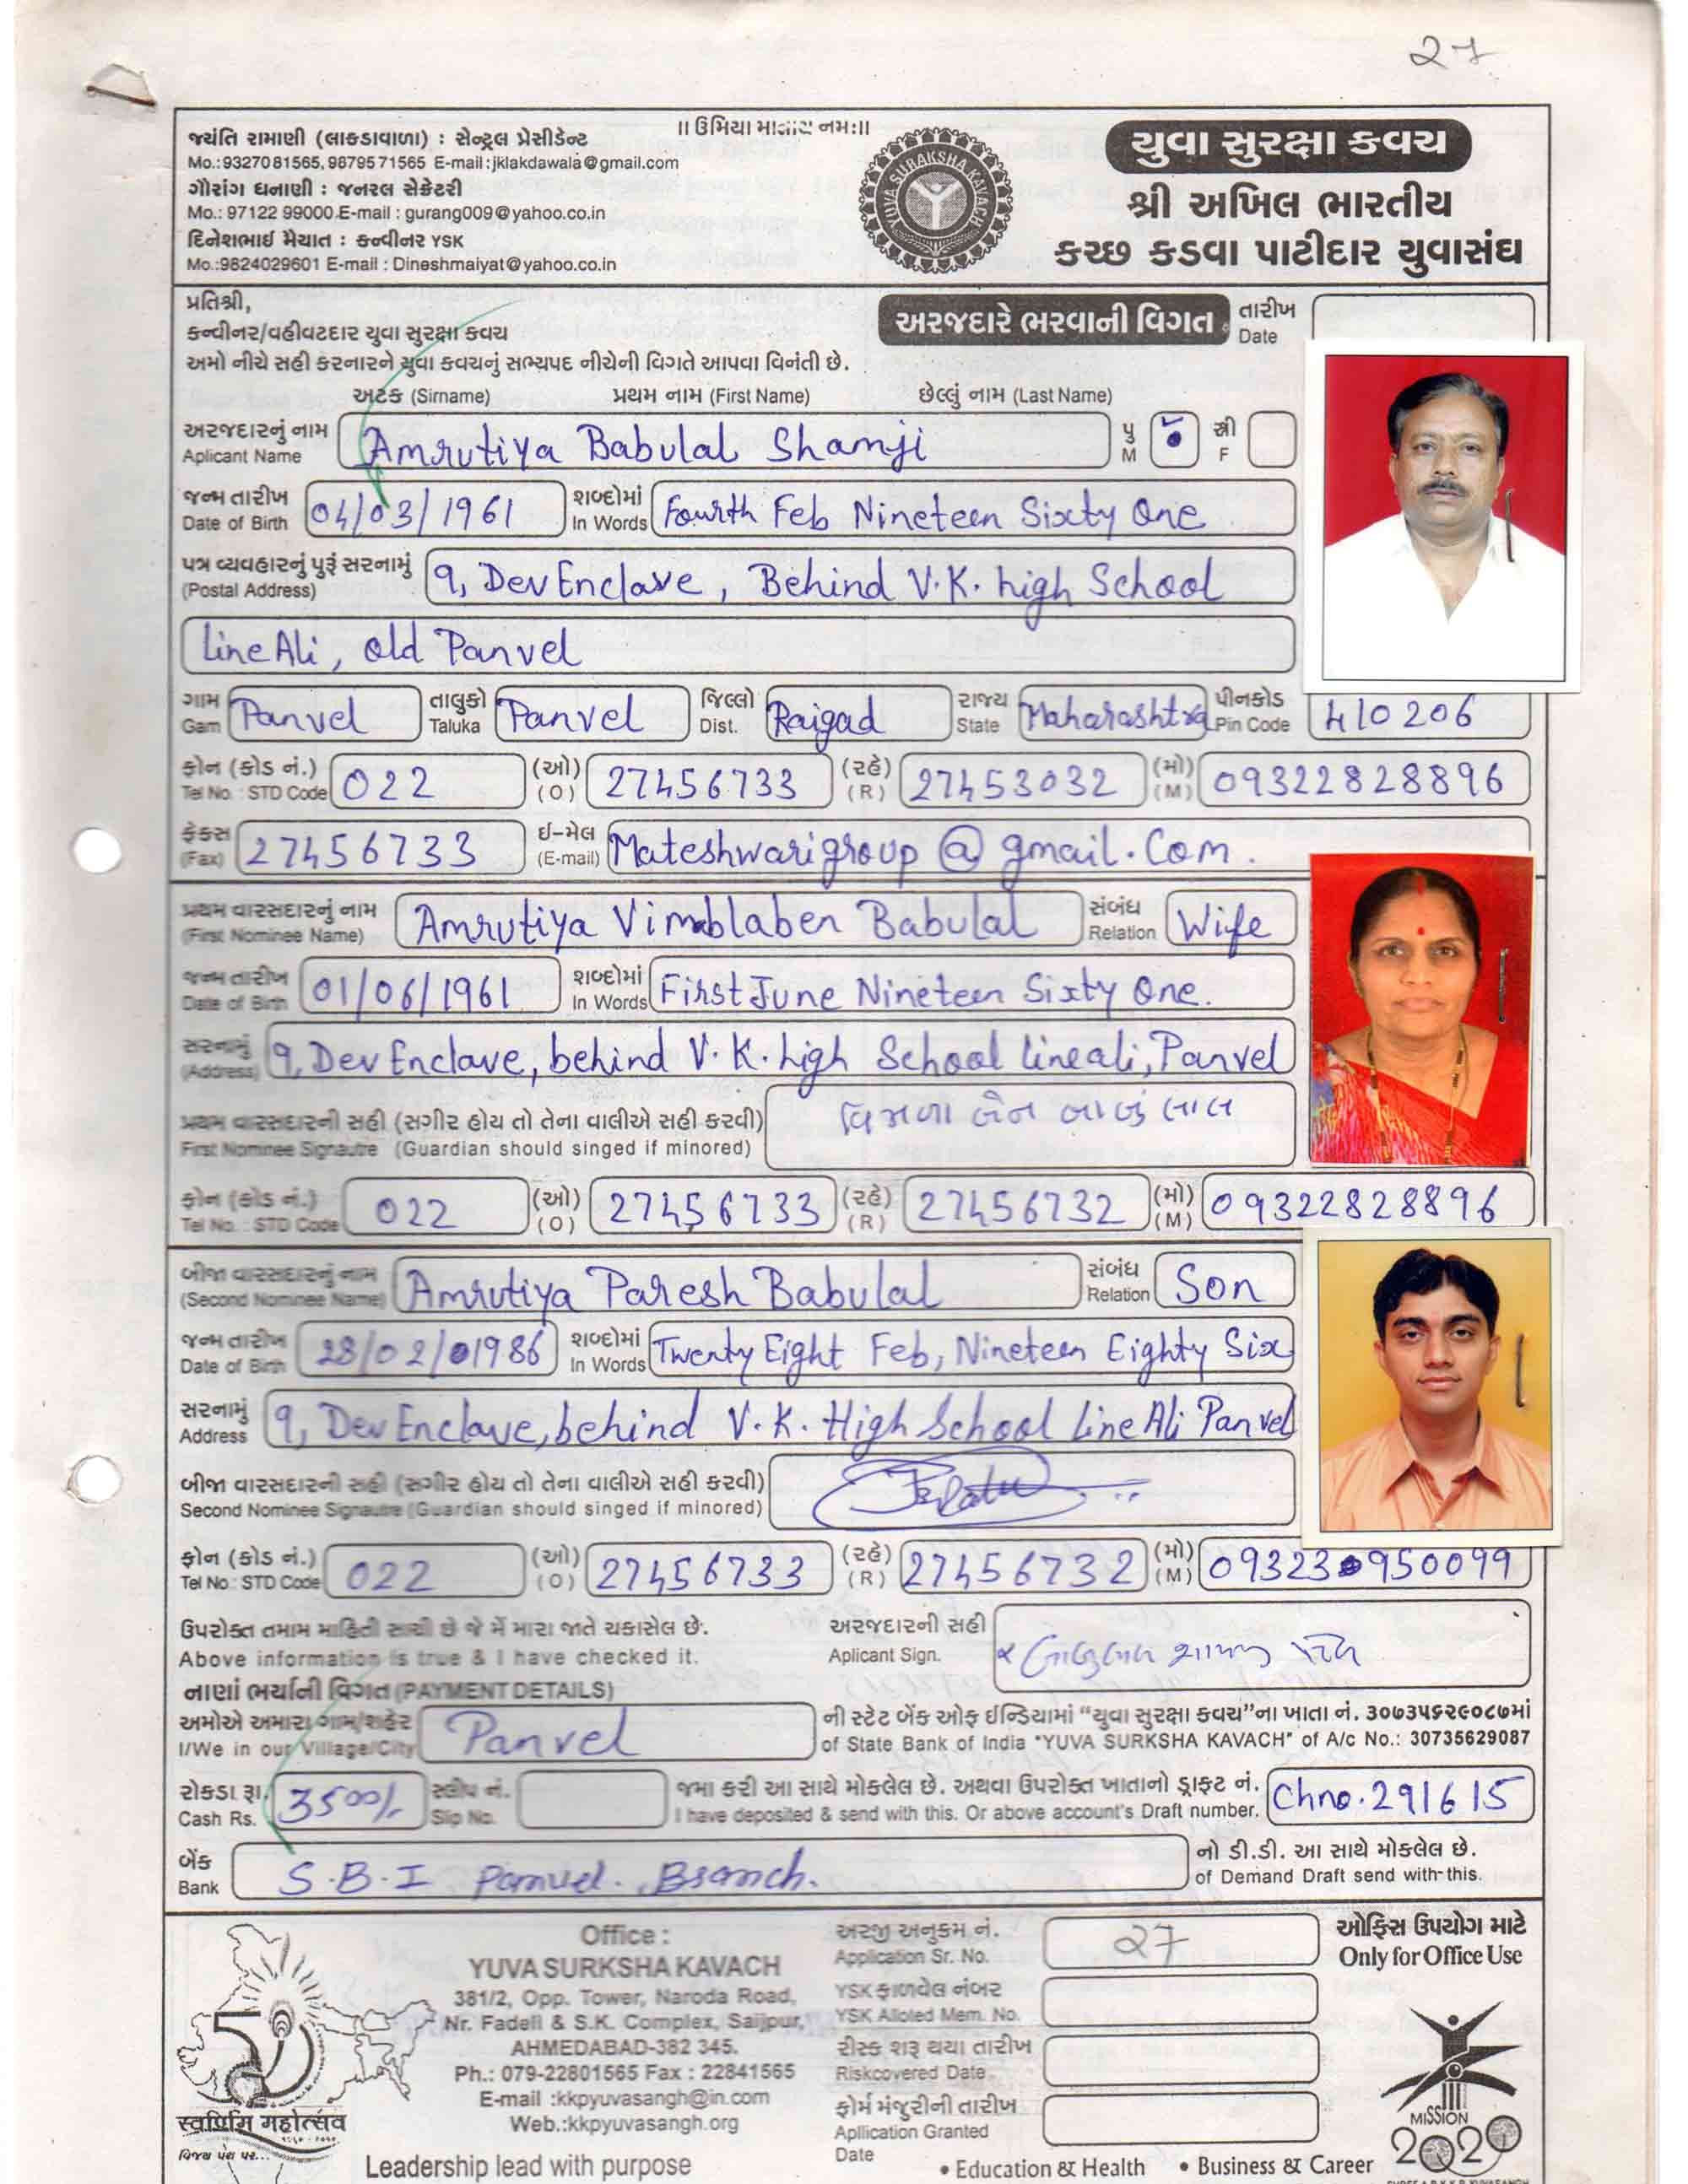 27
જયંતિ રામાણી (લાકડાવાળા) : સેન્ટ્રલ પ્રેસીડેન્ટ
Mo.:9327081565, 9879571565 E-mail :jklakdawala@gmail.com
ગૌરાંગ ધનાણી : જનરલ સેક્રેટરી
Mo.: 97122 99000 E-mail : gurang009@yahoo.co.in
દિનેશભાઈ મૈયાત : કન્વીનર YSK
Mo.:9824029601 E-mail : Dineshmaiyat@yahoo.co.in
॥ ઉમિયા માતાય નમઃ॥
YUVA SURAKSHA KAVACH
યુવા સુરક્ષા કવચ
શ્રી અખિલ ભારતીય
કચ્છ કડવા પાટીદાર યુવાસંઘ
પ્રતિશ્રી,
કન્વીનર/વહીવટદાર યુવા સુરક્ષા કવચ
અમો નીચે સહી કરનારને યુવા કવચનું સભ્યપદ નીચેની વિગતે આપવા વિનંતી છે.
અરજદારે ભરવાની વિગત
તારીખ
Date
અટક (Sirname) પ્રથમ નામ (First Name) છેલ્લું નામ (Last Name)
અરજદારનું નામ
Aplicant Name
Amrutiya Babulal Shamji
પુ M સ્ત્રી F
જન્મ તારીખ
Date of Birth
04/03/1961
શબ્દોમાં
In Words
Fourth Feb Nineteen Sixty One
પત્ર વ્યવહારનું પુરૂં સરનામું
(Postal Address)
9, Dev Enclave, Behind V.K. high School
Line Ali, old Panvel
ગામ
Gam
Panvel
તાલુકો
Taluka
Panvel
જિલ્લો
Dist.
Raigad
રાજ્ય
State
Maharashtra
પીનકોડ
Pin Code
410206
ફોન (કોડ નં.)
Tel No. : STD Code
022
(ઓ)
(O)
27456733
(રહે)
(R)
27453032
(મો)
(M)
09322828896
ફેક્સ
(Fax)
27456733
ઈ-મેલ
(E-mail)
Mateshwarigroup @ gmail.Com.
પ્રથમ વારસદારનું નામ
(First Nominee Name)
Amrutiya Vimablaben Babulal
સંબંધ
Relation
Wife
જન્મ તારીખ
Date of Birth
01/06/1961
શબ્દોમાં
In Words
First June Nineteen Sixty One.
સરનામું
(Address)
9, Dev Enclave, behind V.K. high School Lineali, Panvel
પ્રથમ વારસદારની સહી (સગીર હોય તો તેના વાલીએ સહી કરવી)
First Nominee Signautre (Guardian should singed if minored)
વિમળા બેન બાબુલાલ
ફોન (કોડ નં.)
Tel No. : STD Code
022
(ઓ)
(O)
27456733
(રહે)
(R)
27456732
(મો)
(M)
09322828896
બીજા વારસદારનું નામ
(Second Nominee Name)
Amrutiya Paresh Babulal
સંબંધ
Relation
Son
જન્મ તારીખ
Date of Birth
28/02/01986
શબ્દોમાં
In Words
Twenty Eight Feb, Nineteen Eighty Six
સરનામું
Address
9, Dev Enclave, behind V.K. High School Line Ali Panvel
બીજા વારસદારની સહી (સગીર હોય તો તેના વાલીએ સહી કરવી)
Second Nominee Signautre (Guardian should singed if minored)
ફોન (કોડ નં.)
Tel No.: STD Code
022
(ઓ)
(O)
27456733
(રહે)
(R)
27456732
(મો)
(M)
09323950099
ઉપરોક્ત તમામ માહિતી સાચી છે જે મેં મારા જાતે ચકાસેલ છે.
Above information is true & I have checked it.
અરજદારની સહી
Aplicant Sign.
નાણાં ભર્યાની વિગત (PAYMENT DETAILS)
અમોએ અમારા ગામ/શહેર
I/We in our Village/City
Panvel
ની સ્ટેટ બેંક ઓફ ઈન્ડિયામાં “યુવા સુરક્ષા કવચ”ના ખાતા નં. ૩૦૭૩૫૬૨૯૦૮૭માં
of State Bank of India "YUVA SURKSHA KAVACH" of A/c No.: 30735629087
રોકડા રૂા.
Cash Rs.
3500/-
સ્લીપ નં.
Slip No.
જમા કરી આ સાથે મોકલેલ છે. અથવા ઉપરોક્ત ખાતાનો ડ્રાફ્ટ નં.
I have deposited & send with this. Or above account's Draft number.
Chno. 291615
બેંક
Bank
S.B.I Panvel. Branch.
નો ડી.ડી. આ સાથે મોકલેલ છે.
of Demand Draft send with this.
Office :
YUVA SURKSHA KAVACH
381/2, Opp. Tower, Naroda Road,
Nr. Fadeli & S.K. Complex, Saijpur,
AHMEDABAD-382 345.
Ph.: 079-22801565 Fax : 22841565
E-mail :kkpyuvasangh@in.com
Web.:kkpyuvasangh.org
Leadership lead with purpose
50
સ્વર્ણિમ મહોત્સવ
વિજય પંથ પર...
અરજી અનુક્રમ નં.
Application Sr. No.
27
YSK ફાળવેલ નંબર
YSK Alloted Mem. No.
રીસ્ક શરૂ થયા તારીખ
Riskcovered Date
ફોર્મ મંજુરીની તારીખ
Apllication Granted
Date
ઓફિસ ઉપયોગ માટે
Only for Office Use
MISSION
2020
• Education & Health • Business & Career